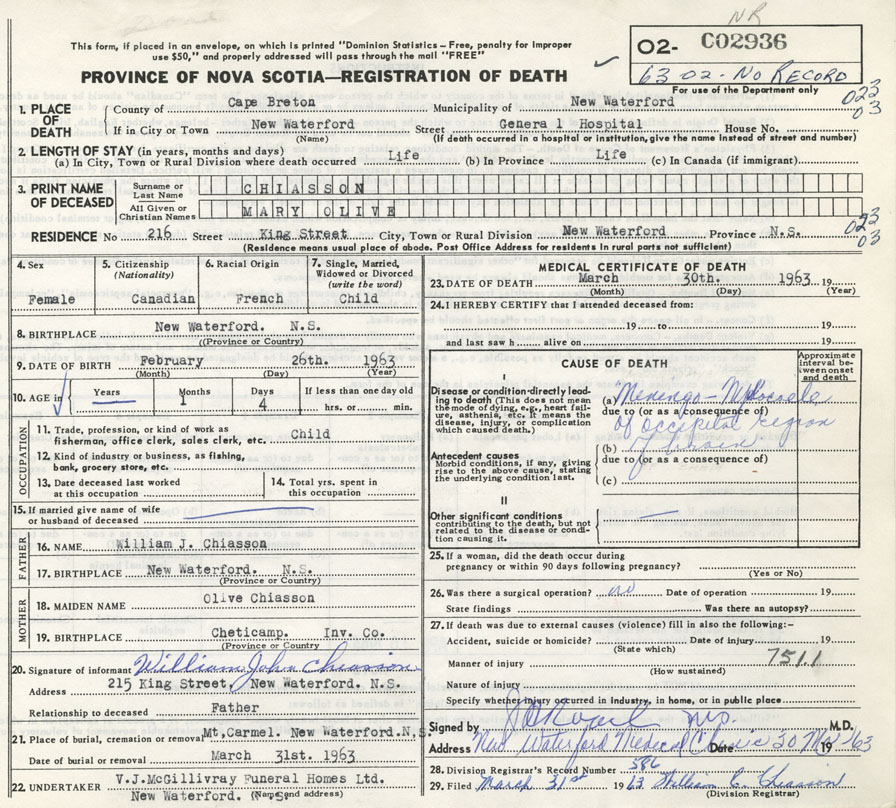 NR
This form, if placed in an envelope, on which is printed "Dominion Statistics – Free, penalty for improper
use $50," and properly addressed will pass through the mail "FREE"
O2- C02936
63-02-No RECORD
PROVINCE OF NOVA SCOTIA—REGISTRATION OF DEATH
For use of the Department only
1. PLACE OF DEATH
County of Cape Breton Municipality of New Waterford
023
03
If in City or Town New Waterford Street General Hospital House No.
(Name) (If death occurred in a hospital or institution, give the name instead of street and number)
2. LENGTH OF STAY (in years, months and days)
(a) In City, Town or Rural Division where death occurred Life (b) In Province Life (c) In Canada (if immigrant)
3. PRINT NAME OF DECEASED
Surname or Last Name CHIASSON
All Given or Christian Names MARY OLIVE
RESIDENCE No 216 Street King Street City, Town or Rural Division New Waterford Province N.S.
023
03
(Residence means usual place of abode. Post Office Address for residents in rural parts not sufficient)
4. Sex
Female
5. Citizenship
(Nationality)
Canadian
6. Racial Origin
French
7. Single, Married,
Widowed or Divorced
(write the word)
Child
8. BIRTHPLACE New Waterford. N.S.
((Province or Country)
9. DATE OF BIRTH February 26th. 1963
(Month) (Day) (Year)
10. AGE in Years Months Days If less than one day old
1 4 hrs. or min.
OCCUPATION
11. Trade, profession, or kind of work as
fisherman, office clerk, sales clerk, etc. Child
12. Kind of industry or business, as fishing,
bank, grocery store, etc.
13. Date deceased last worked
at this occupation
14. Total yrs. spent in
this occupation
15. If married give name of wife
or husband of deceased
FATHER
16. NAME William J. Chiasson
17. BIRTHPLACE New Waterford. N.S.
(Province or Country)
MOTHER
18. MAIDEN NAME Olive Chiasson
19. BIRTHPLACE Cheticamp. Inv. Co.
(Province or Country
20. Signature of informant William John Chiasson
Address 215 King Street. New Waterford. N.S.
Relationship to deceased Father
21. Place of burial, cremation or removal Mt,Carmel. New Waterford.N,S
Date of burial or removal March 31st. 1963
22. UNDERTAKER V.J.McGillivray Funeral Homes Ltd.
New Waterford. N.S.
(Name and address)
MEDICAL CERTIFICATE OF DEATH
23. DATE OF DEATH March 30th. 1963 19
(Month) (Day) (Year)
24. I HEREBY CERTIFY that I attended deceased from:
19 to 19
and last saw h alive on 19
CAUSE OF DEATH
Approximate
interval be-
tween onset
and death
I
Disease or condition-directly lead-
ing to death (This does not mean
the mode of dying, e.g., heart fail-
ure, asthenia, etc. It means the
disease, injury, or complication
which caused death.)
(a) Meningo-Myelocoele
due to (or as a consequence of)
of occipital region
Antecedent causes
Morbid conditions, if any, giving
rise to the above cause, stating
the underlying condition last.
(b) brain
due to (or as a consequence of)
(c)
II
Other significant conditions
contributing to the death, but not
related to the disease or condi-
tion causing it.
25. If a woman, did the death occur during
pregnancy or within 90 days following pregnancy?
(Yes or No)
26. Was there a surgical operation? no Date of operation 19
State findings Was there an autopsy?
27. If death was due to external causes (violence) fill in also the following:—
Accident, suicide or homicide? Date of injury 19
(State which)
Manner of injury 751.1
(How sustained)
Nature of injury
Specify whether injury occurred in industry, in home, or in public place
Signed by M.D. M.D.
Address New Waterford Medical Clinic Date 30 Mar 1963
28. Division Registrar's Record Number 586
29. Filed March 31st 1963 William C. Chiasson
(Division Registrar)